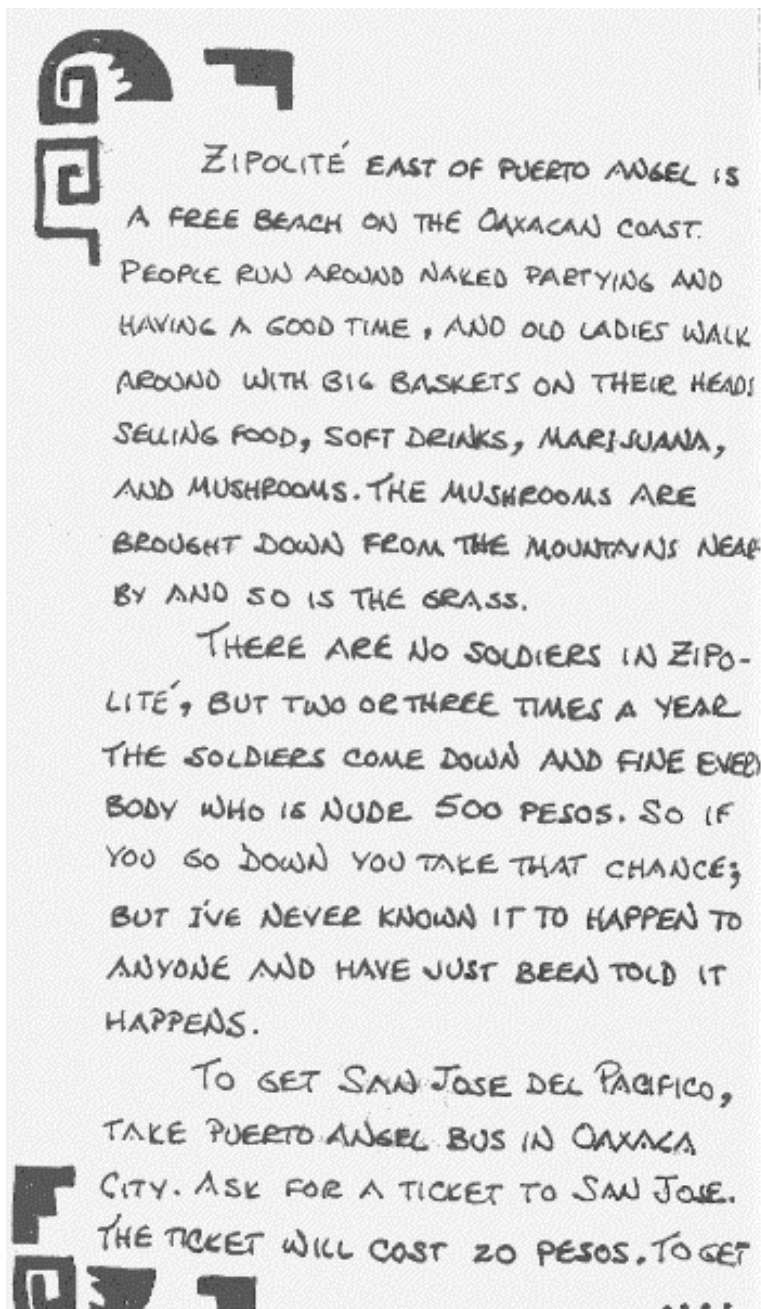 ZIPOLITÉ EAST OF PUERTO ANGEL IS
A FREE BEACH ON THE OAXACAN COAST.
PEOPLE RUN AROUND NAKED PARTYING AND
HAVING A GOOD TIME, AND OLD LADIES WALK
AROUND WITH BIG BASKETS ON THEIR HEADS
SELLING FOOD, SOFT DRINKS, MARIJUANA,
AND MUSHROOMS. THE MUSHROOMS ARE
BROUGHT DOWN FROM THE MOUNTAINS NEAR
BY AND SO IS THE GRASS.
THERE ARE NO SOLDIERS IN ZIPO-
LITÉ, BUT TWO OR THREE TIMES A YEAR
THE SOLDIERS COME DOWN AND FINE EVERY
BODY WHO IS NUDE 500 PESOS. SO IF
YOU GO DOWN YOU TAKE THAT CHANCE;
BUT I'VE NEVER KNOWN IT TO HAPPEN TO
ANYONE AND HAVE JUST BEEN TOLD IT
HAPPENS.
TO GET SAN JOSE DEL PACIFICO,
TAKE PUERTO ANGEL BUS IN OAXACA
CITY. ASK FOR A TICKET TO SAN JOSE.
THE TICKET WILL COST 20 PESOS. TO GET